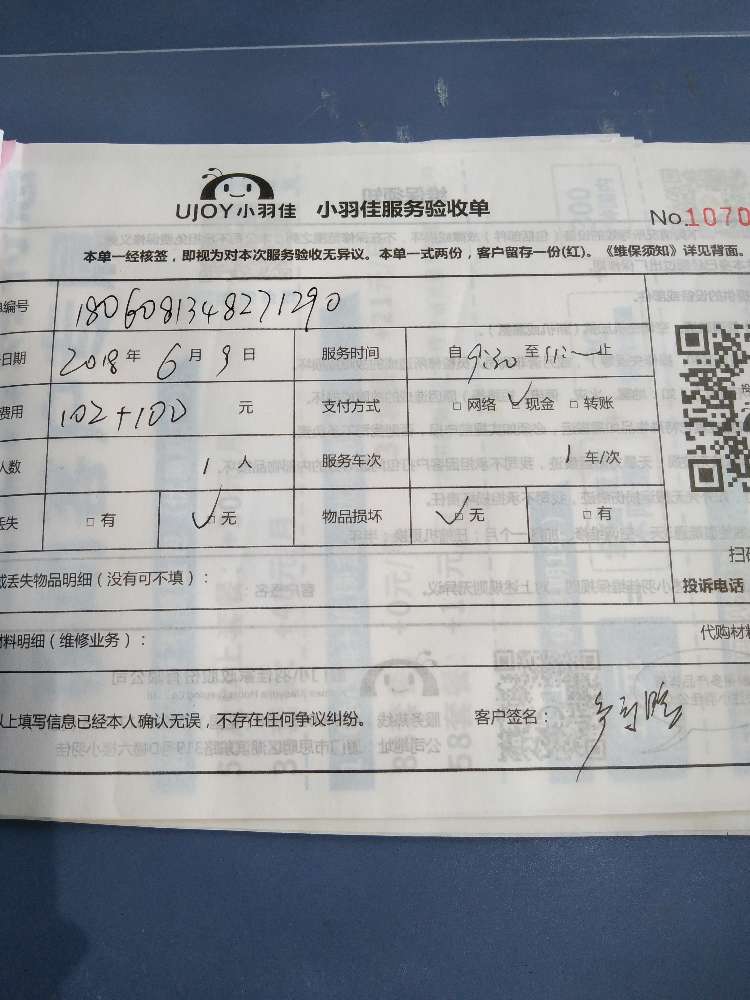 UJOY小羽佳 小羽佳服务验收单
No.1070
本单一经核签，即视为对本次服务验收无异议。本单一式两份，客户留存一份(红)。《维保须知》详见背面。
编号 1806081348271290
日期 2018年6月9日 服务时间 自9:30至11:~止
费用 102+100 元 支付方式 □网络 ☑现金 □转账
人数 1人 服务车次 1车/次
丢失 □有 ☑无 物品损坏 ☑无 □有
扫码
或丢失物品明细（没有可不填）：
投诉电话
材料明细（维修业务）：
代购材料
以上填写信息已经本人确认无误，不存在任何争议纠纷。 客户签名：